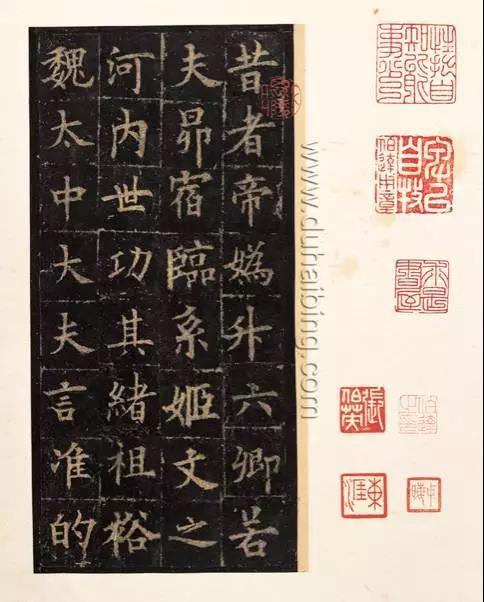 昔者帝媯升六卿若
夫昴宿臨系姬文之
河内世功其緒祖裕
魏太中大夫言准的
張伯英
www.duhaibing.com